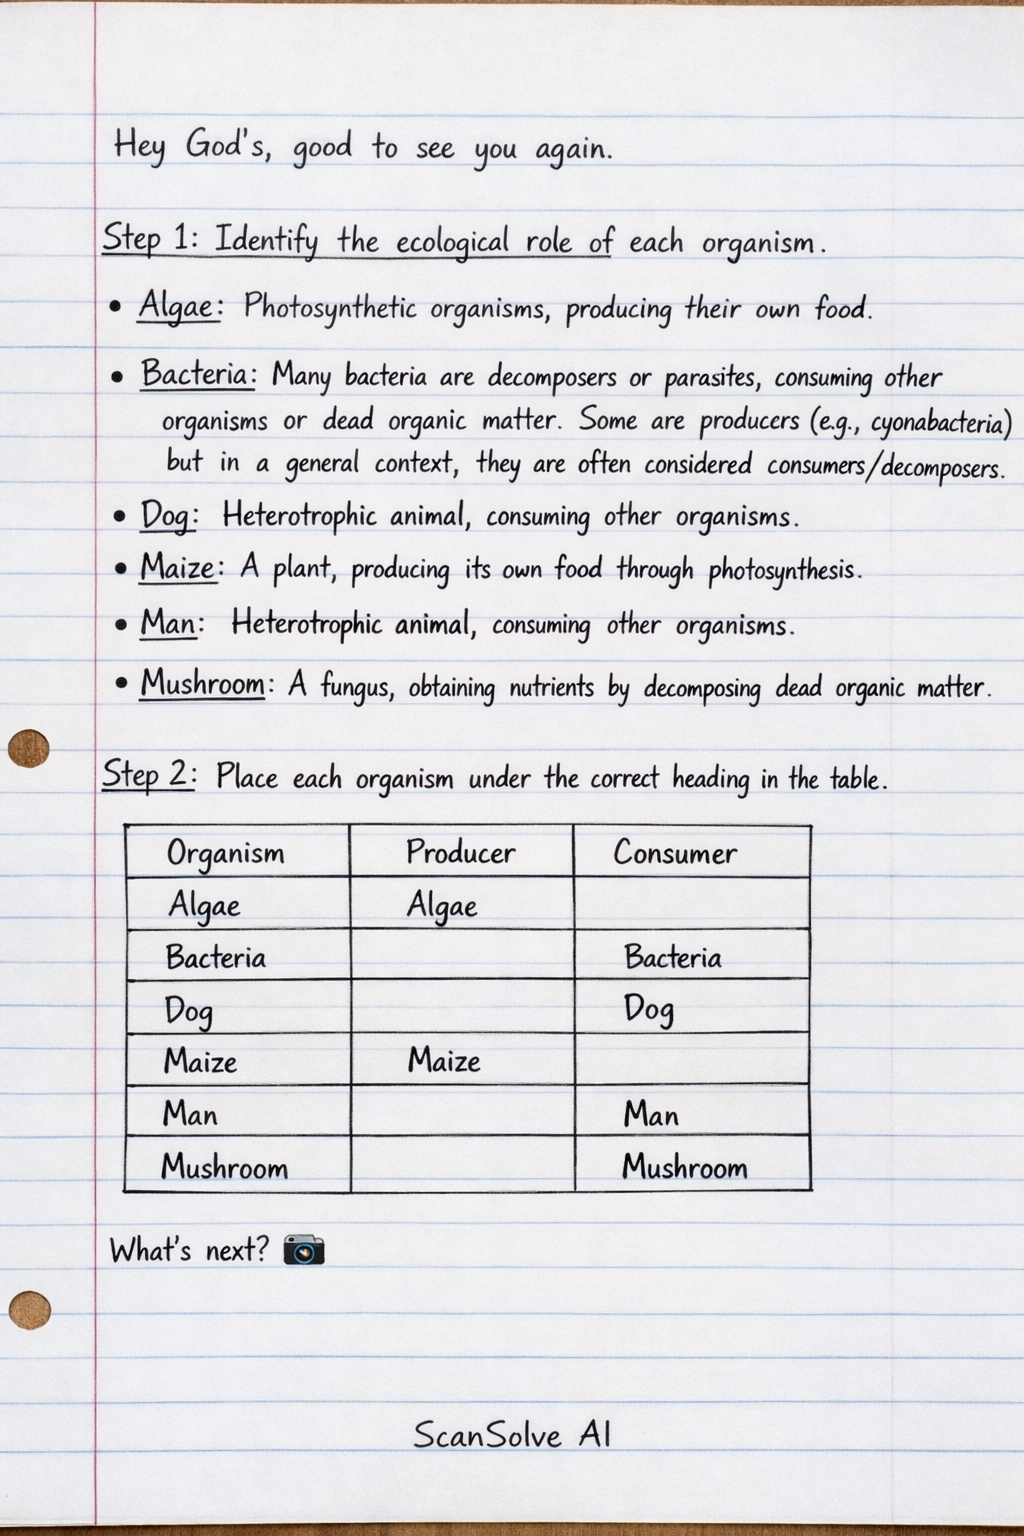 Hey God's, good to see you again.
Step 1: Identify the ecological role of each organism.
• Algae: Photosynthetic organisms, producing their own food.
• Bacteria: Many bacteria are decomposers or parasites, consuming other
organisms or dead organic matter. Some are producers (e.g., cyonabacteria)
but in a general context, they are often considered consumers/decomposers.
• Dog: Heterotrophic animal, consuming other organisms.
• Maize: A plant, producing its own food through photosynthesis.
• Man: Heterotrophic animal, consuming other organisms.
• Mushroom: A fungus, obtaining nutrients by decomposing dead organic matter.
Step 2: Place each organism under the correct heading in the table.
Organism Producer Consumer
Algae Algae
Bacteria Bacteria
Dog Dog
Maize Maize
Man Man
Mushroom Mushroom
What's next? 📷
ScanSolve AI